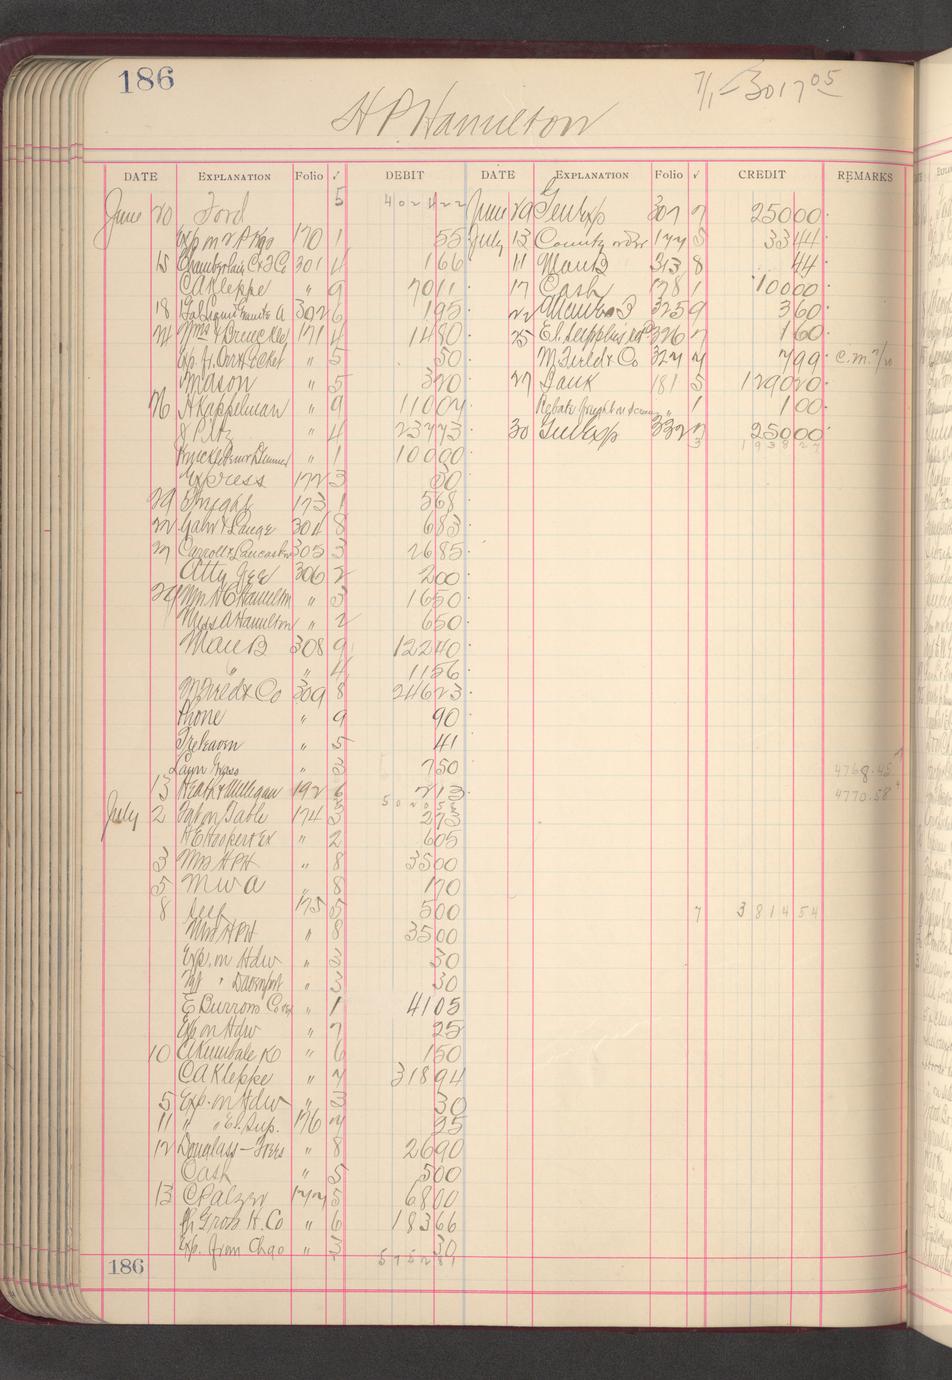 186
7/1 3017 05
H P Hamilton
DATE EXPLANATION Folio ✓ DEBIT DATE EXPLANATION Folio ✓ CREDIT REMARKS
June 20 Ford 5 402422 June 29 Gen Exp 307 7 25000
Exp on 170 1 55 July 13 County order 177 3344
15 Chamberlain 301 4 166 11 Mau B 313 8 44
CA Kleppe " 9 7011 17 Cash 178 1 10000
18 302 6 195 22 Mau B 325 9 360
24 & Bruckley 171 4 1480 25 El Supplies 326 7 160
Exp fr " 5 50 M Field & Co 327 7 799 c.m. 7/20
Mason " 5 320 27 181 5 129020
26 H Kappelman " 9 11004 Rebate freight on " 1 100
J Pitz " 4 23773 30 Gen Exp 332 7 25000
" 1 10000 3 193827
Express 172 3 50
29 Freight 173 1 568
22 Gahr & Lange 304 8 683
27 Carroll & Lancaster 305 3 2685
Atty Fee 306 2 200
29 Mrs H C Hamilton " 3 1650
Miss A Hamilton " 2 650
Mau B 308 9 12240
" " 4 1156
M Field & Co 309 8 24623
Phone " 9 90
Treleaven " 5 41
Lawn Grass " 3 750 4768.45
13 Heath & Milligan 192 6 213 4770.58
July 2 on Table 174 3 273
H E Hooper Ex " 2 605
3 Mrs HPH " 8 3500
5 M W A " 8 170
8 Self 175 5 500 7 381454
Mrs HPH " 8 3500
Exp. on Hdw " 3 30
" Davenport " 3 30
E Burrows " 1 4105
Exp on Hdw " 7 25
10 " 6 150
CA Kleppe " 7 31894
5 Exp. on Hdw " 3 30
11 " " El. Sup. 176 7 25
12 Douglass - Trees " 8 2690
Cash " 5 500
13 C Palzer 177 5 6800
Gross H. Co " 6 18366
Exp. from Chgo " 3 30
186 575281